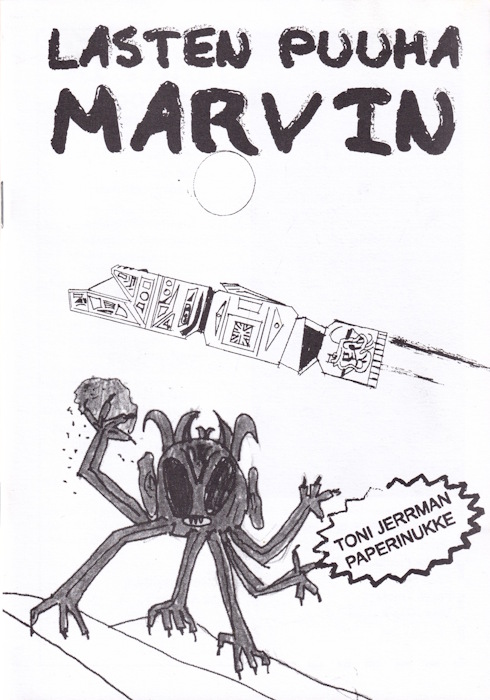 LASTEN PUUHA
MARVIN
TONI JERRMAN
PAPERINUKKE